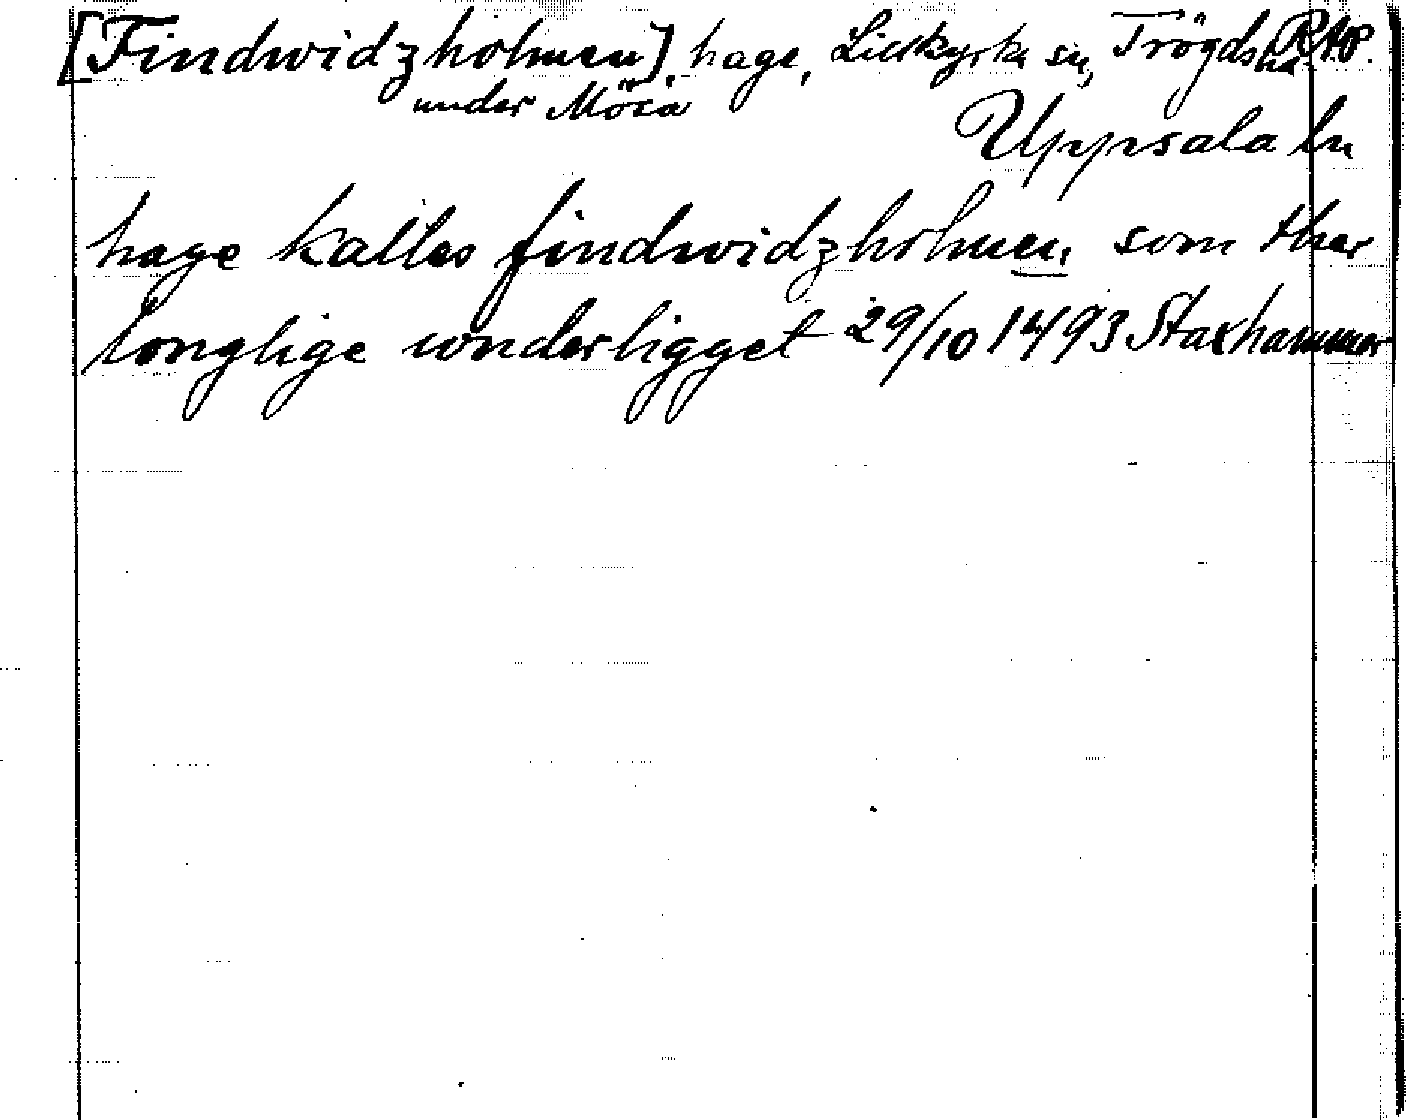 [Findwidzholmen], hage, Litslkyrka sn, Trögds hd RAP.
under Mösia
Uppsala ln
hage kalles findwidzholmen, som ther
longlige wnderligget 29/10 1493 Staxhammer